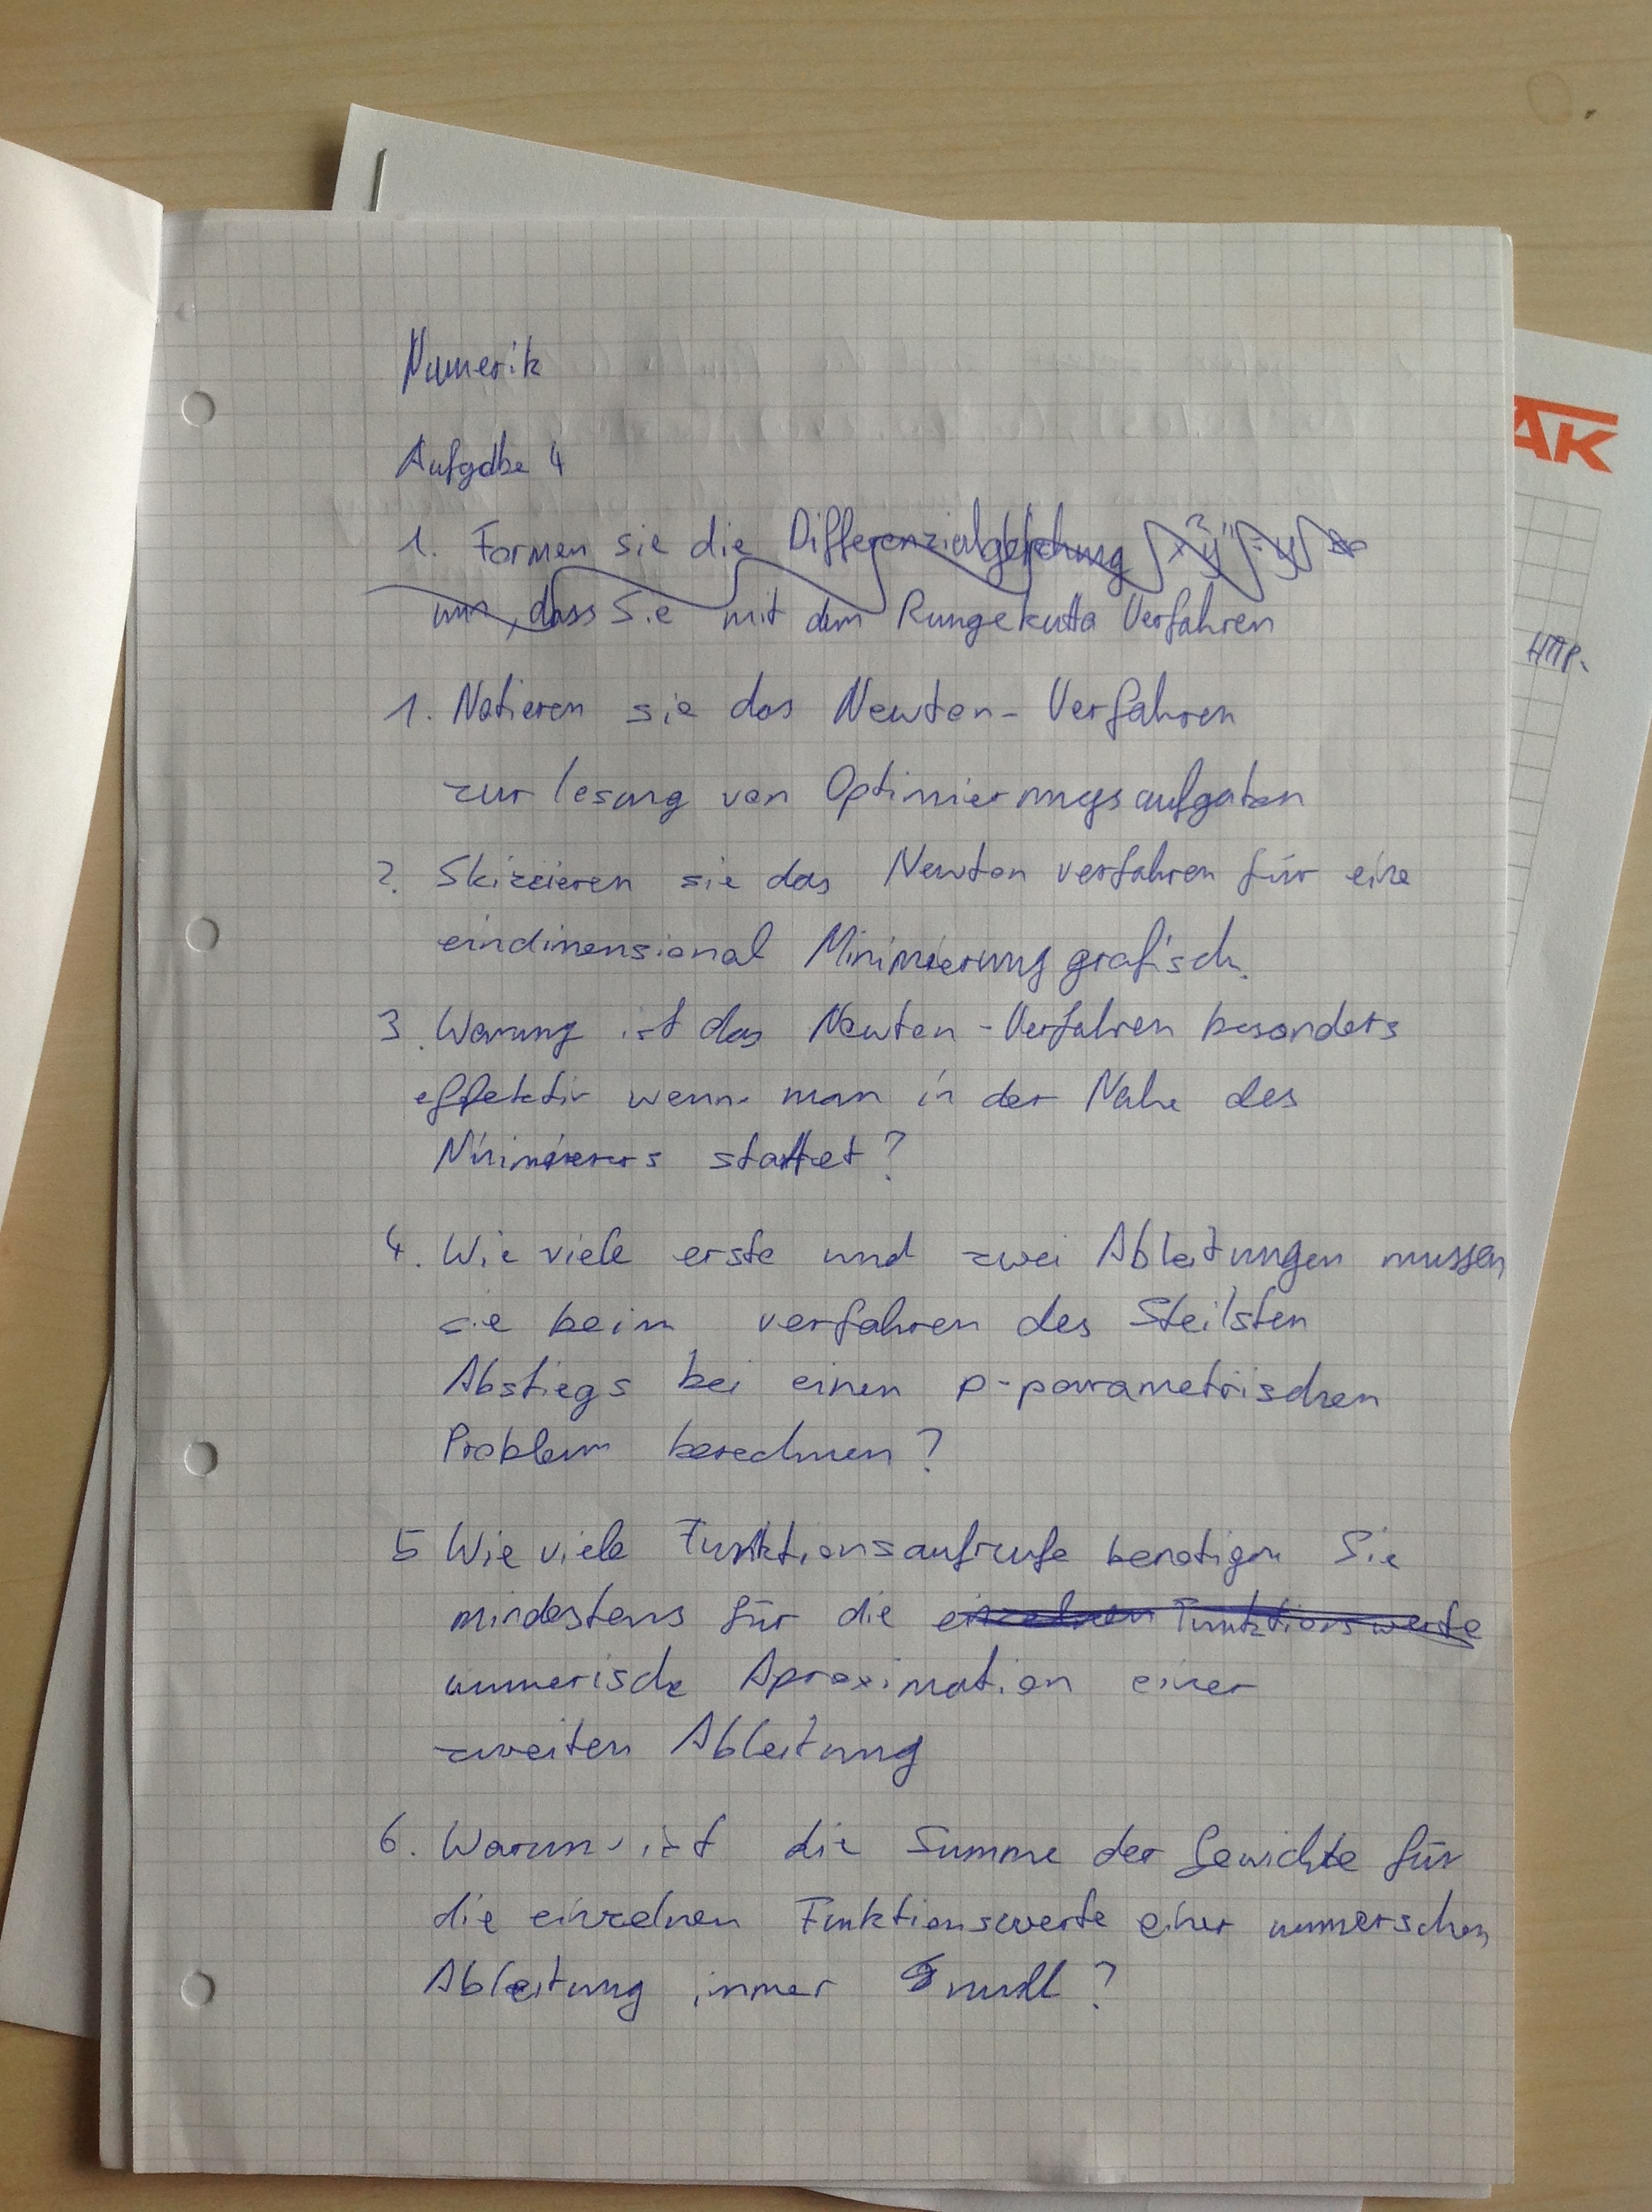 Numerik
Aufgabe 4
1. Formen sie die Differenzialgleichung
um, dass Sie mit dem Rungekutta Verfahren
1. Notieren sie das Newton-Verfahren
zur lesung von Optimierungsaufgaben
2. Skizzieren sie das Newton verfahren für eine
eindimensional Minimierung grafisch.
3. Warum ist das Newton-Verfahren besonders
effektiv wenn man in der Nahe des
Minimierers startet?
4. Wie viele erste und zwei Ableitungen mussen
sie beim verfahren des Steilsten
Abstiegs bei einen p-parametrischen
Problem berechnen?
5 Wie viele Funktionsaufrufe benotigen Sie
mindestens für die einzelnen Funktionswerte
numerische Aproximation einer
zweiten Ableitung
6. Warum ist die Summe der Gewichte für
die einzelnen Funktionswerte einer numerschen
Ableitung immer null?
AK
HTTP.